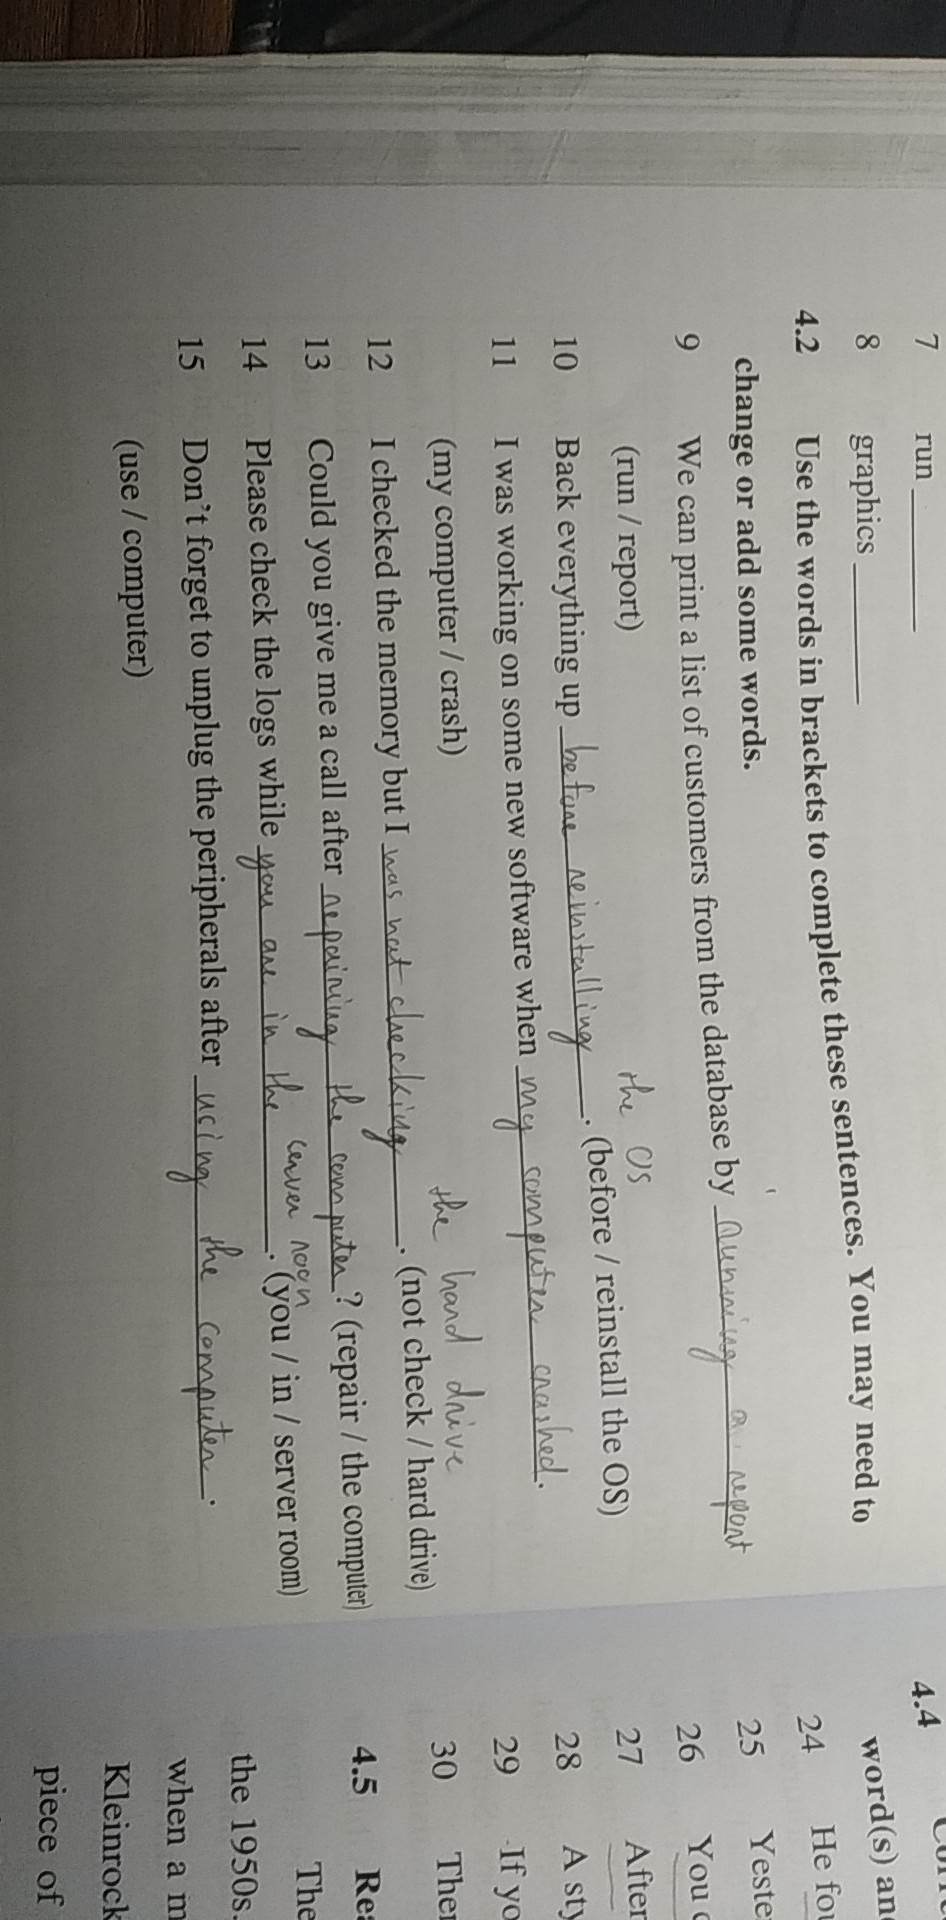 7 run
8 graphics
4.2 Use the words in brackets to complete these sentences. You may need to
change or add some words.
9 We can print a list of customers from the database by running a report
(run / report)
the OS
10 Back everything up before reinstalling. (before / reinstall the OS)
11 I was working on some new software when my computer crashed.
(my computer / crash)
the hard drive
12 I checked the memory but I was not checking. (not check / hard drive)
13 Could you give me a call after repairing the computer? (repair / the computer)
server room
14 Please check the logs while you are in the. (you / in / server room)
15 Don't forget to unplug the peripherals after using the computer.
(use / computer)
4.4
word(s) an
24 He fo
25 Yeste
26 You
27 After
28 A sty
29 If yo
30 The
4.5 Re
The
the 1950s.
when a m
Kleinrock
piece of